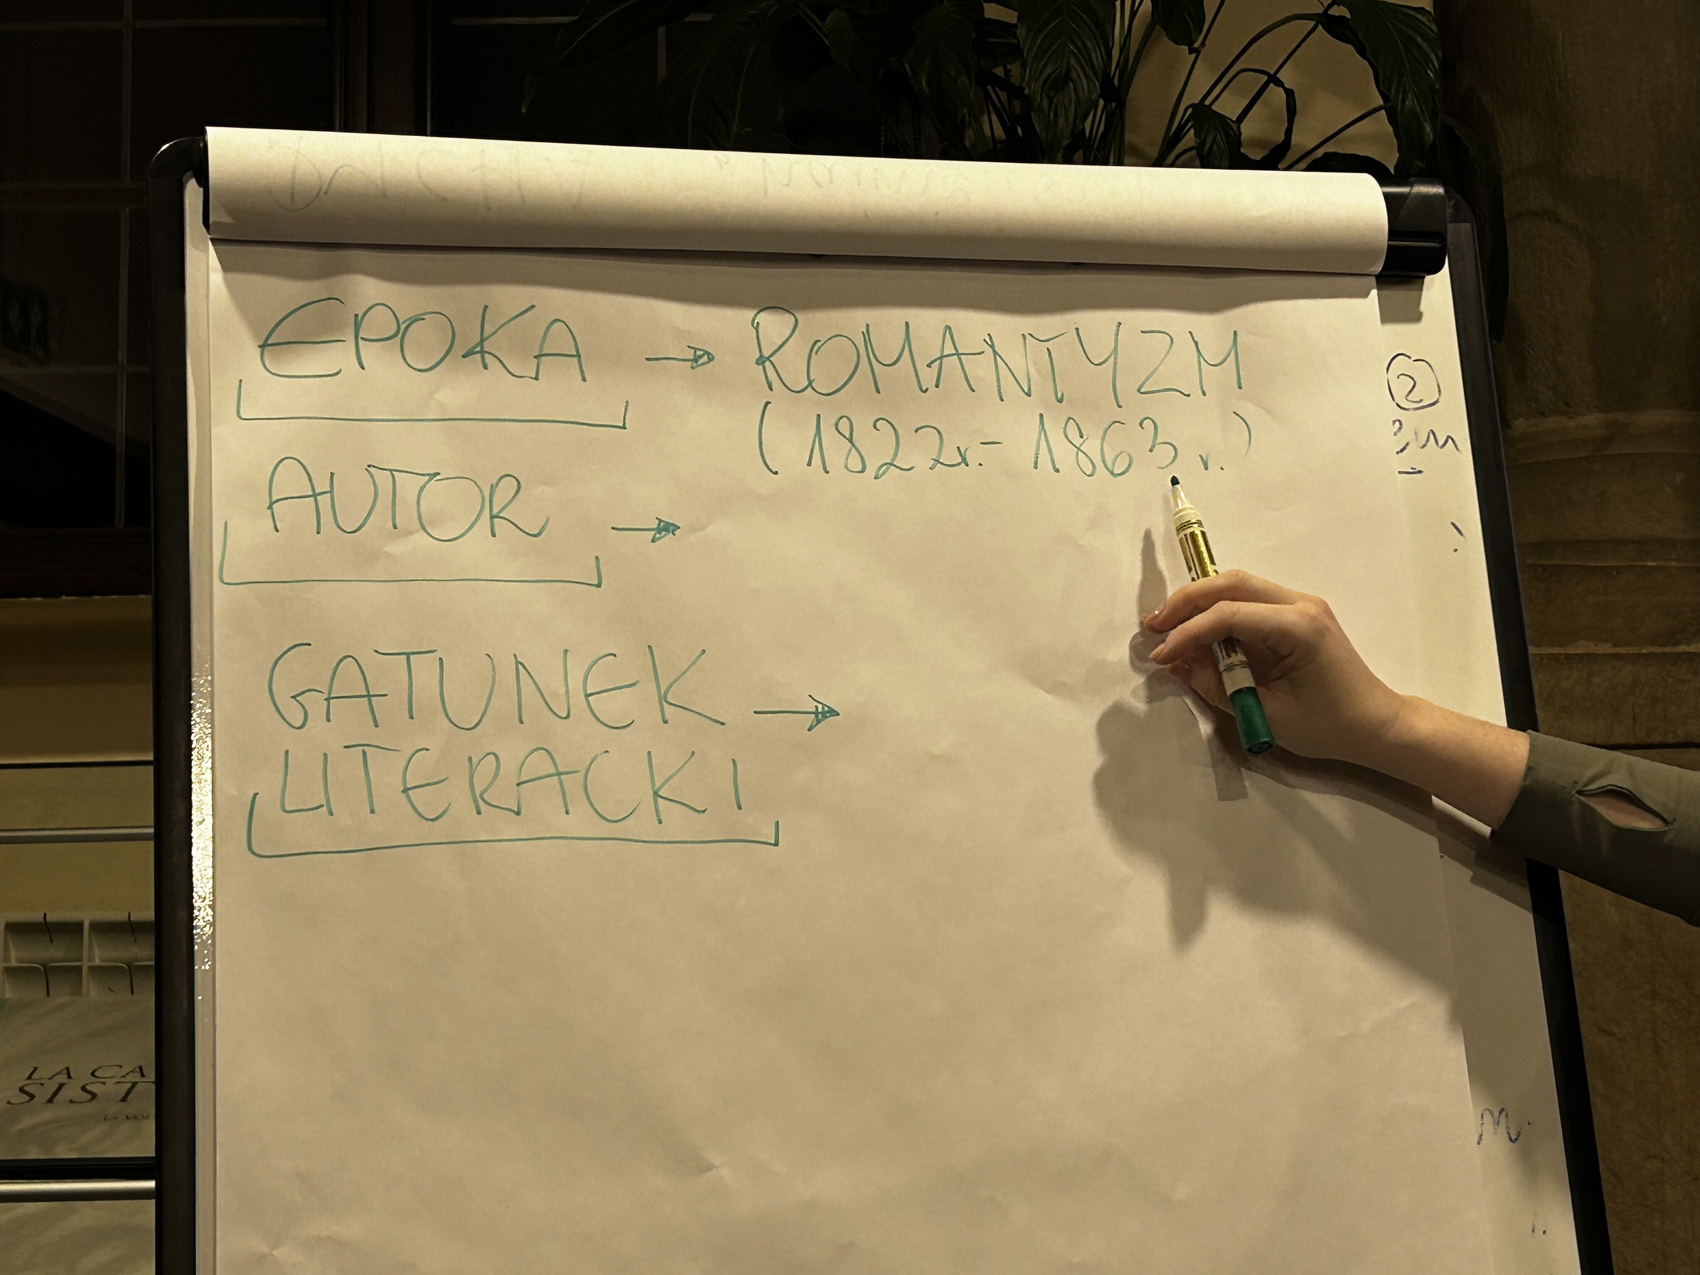 EPOKA → ROMANTYZM
(1822r. - 1863r.)
AUTOR →
GATUNEK →
LITERACKI
2
LA CA
SIST